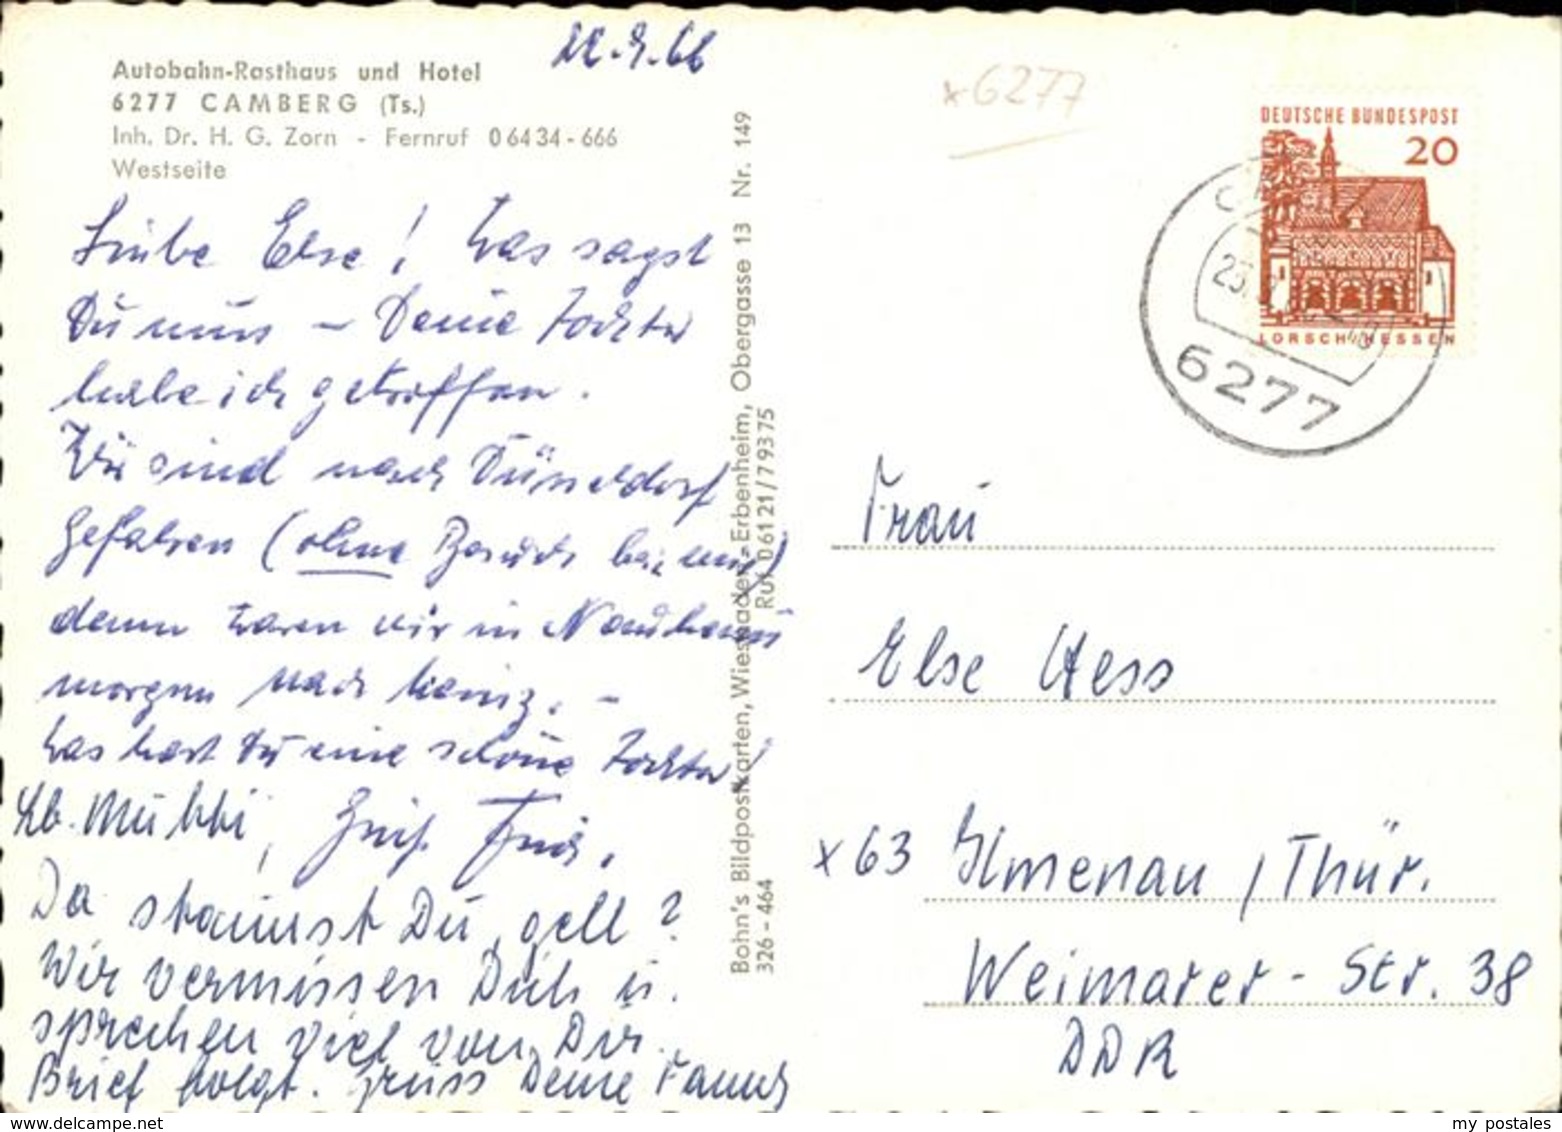 22.9.66
Autobahn-Rasthaus und Hotel
6277 CAMBERG (Ts.)
Inh. Dr. H. G. Zorn - Fernruf 06434-666
Westseite
Liebe Else! Was sagst
Du nun – Deine Tochter
habe ich getroffen.
Wir sind nach Düsseldorf
gefahren (ohne Besuch bei mir)
dann waren wir in Nauheim
morgen nach Mainz. –
Was hast Du eine schöne Tochter!
Lb. Mutti, Gruß
Da staunst Du, gell?
Wir vermissen Dich u.
sprechen viel von Dir.
Brief folgt. Gruss Deine
Bohn's Bildpostkarten, Wiesbaden-Erbenheim, Obergasse 13 Nr. 149
326-464 Ruf 06121/79375
x6277
DEUTSCHE BUNDESPOST
20
LORSCH/HESSEN
6277
Frau
Else Hess
x 63 Ilmenau / Thür.
Weimarer-Str. 38
DDR
my postales